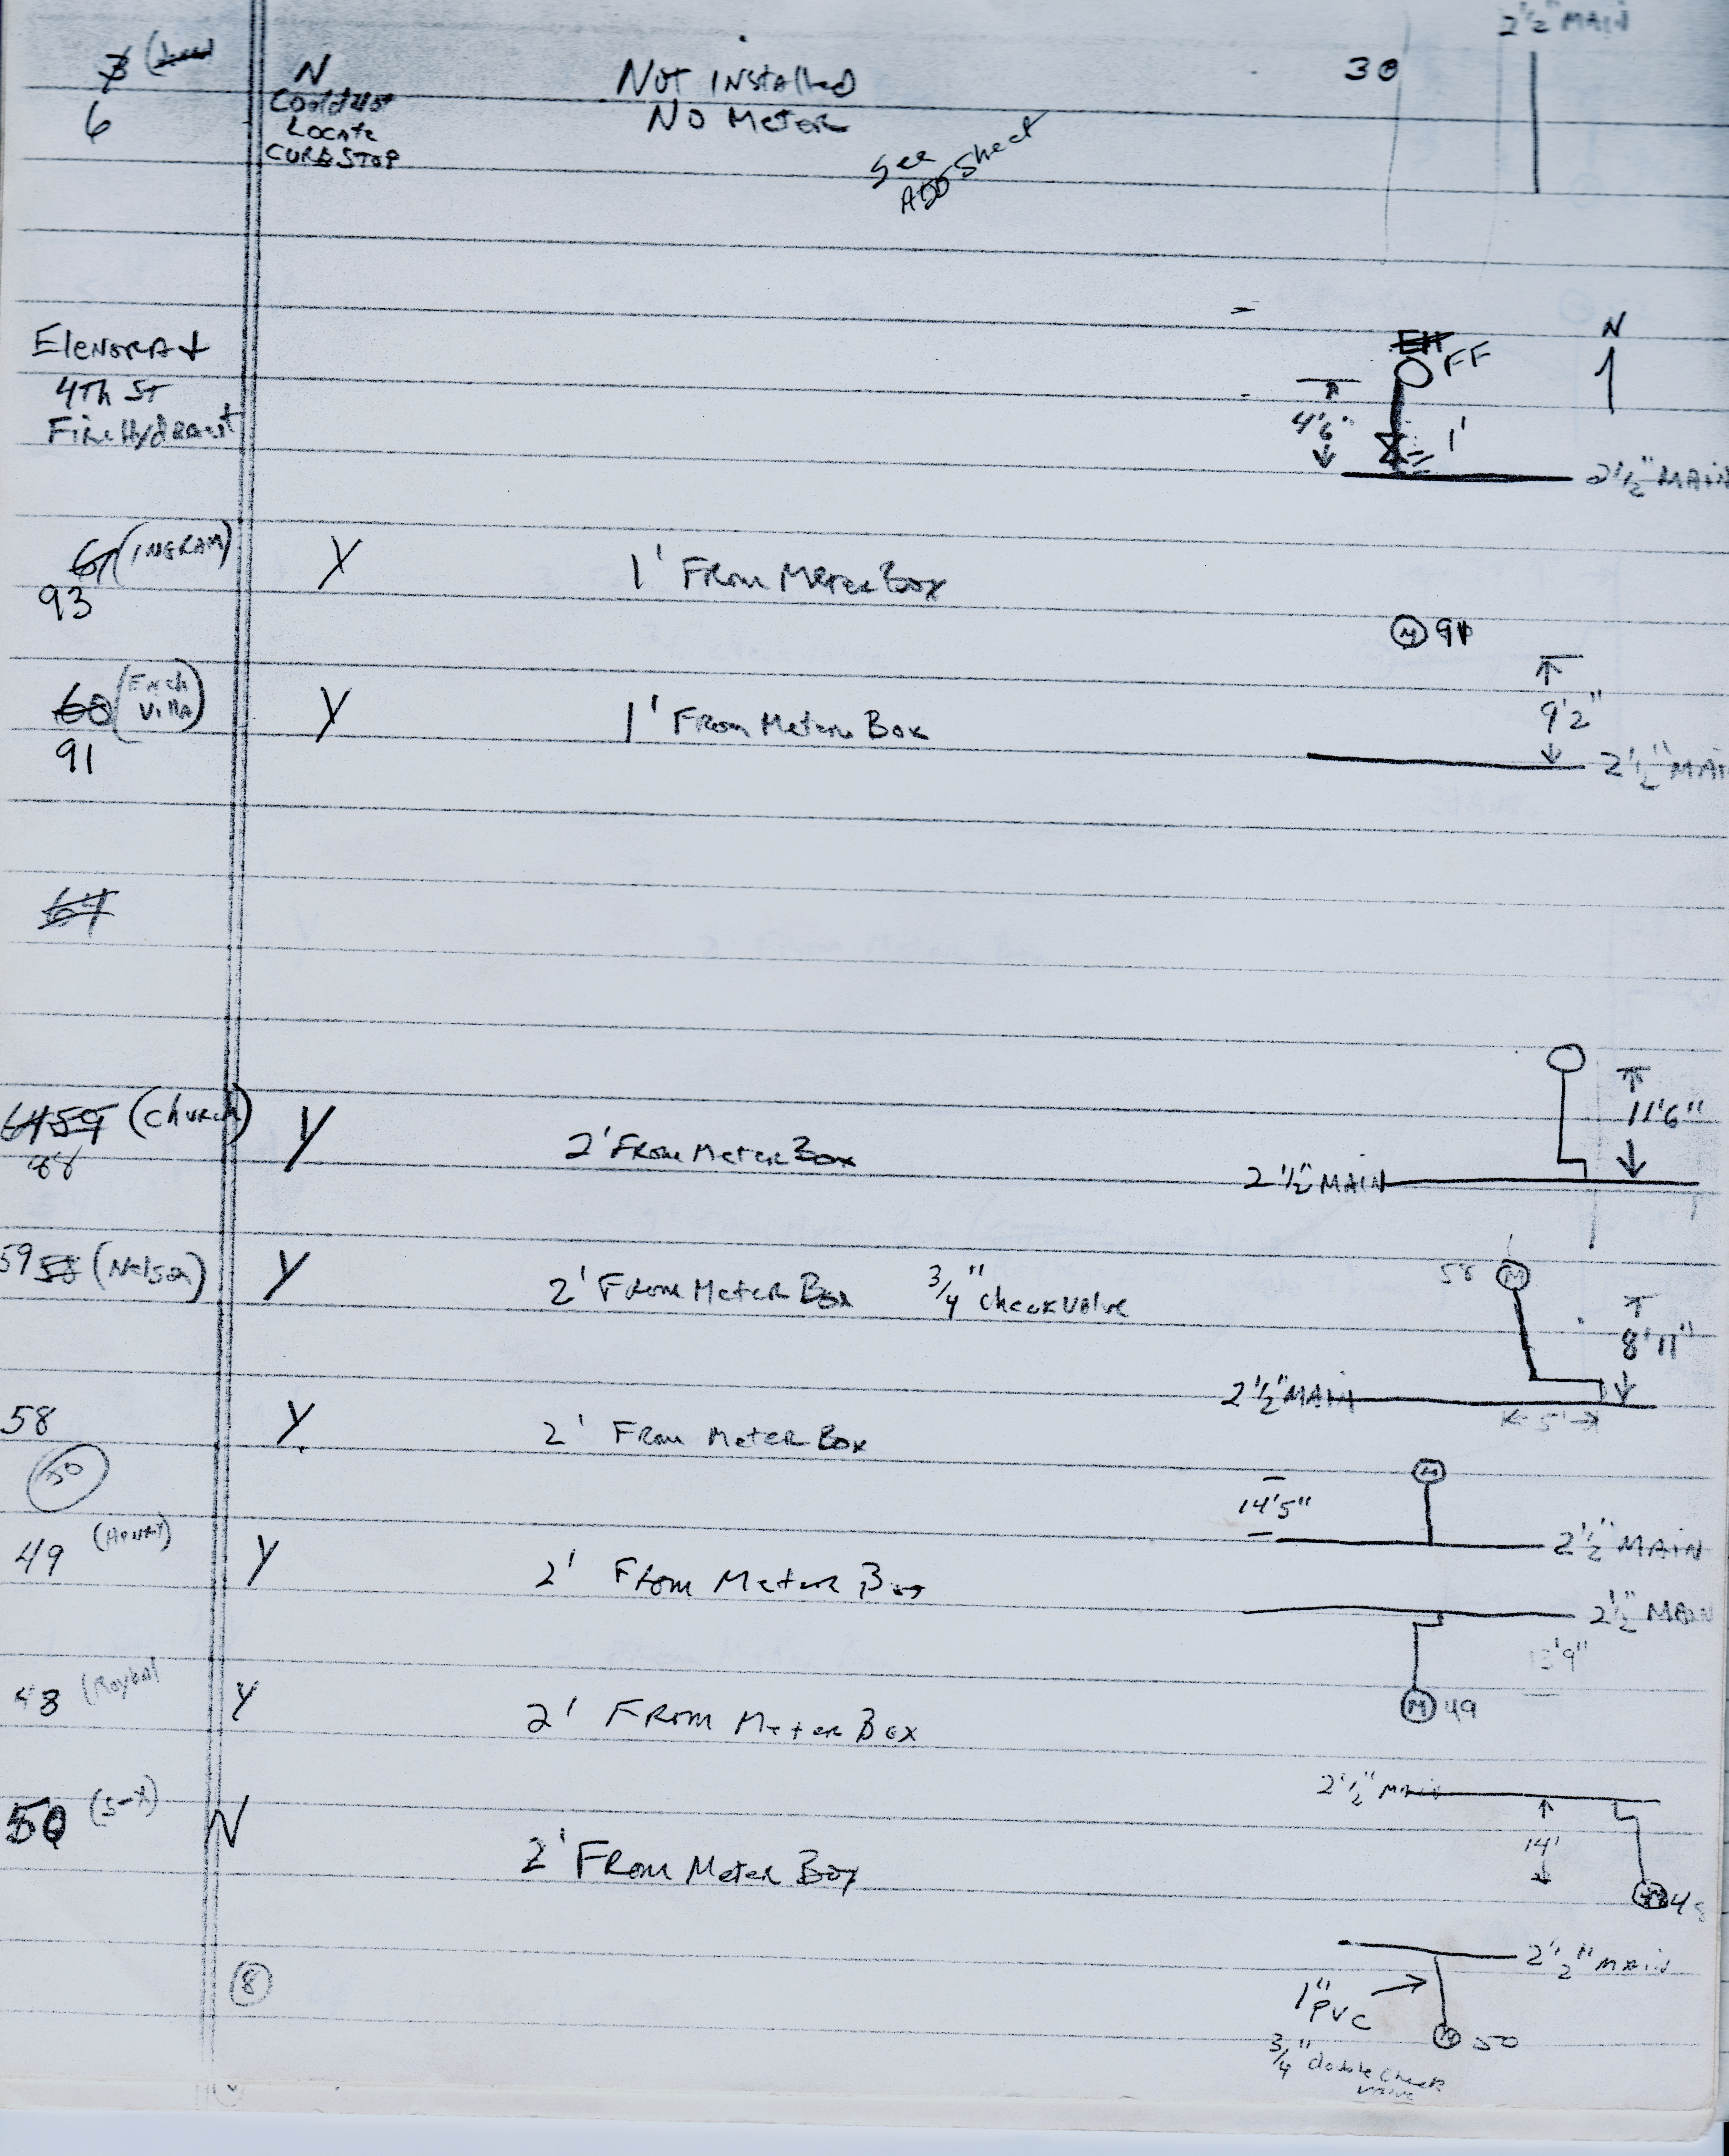 2 1/2" MAIN
N
Not Installed
30
6
Could Not
Locate
CURB STOP
No Meter
See
ADD Sheet
Elenora +
4Th St
Fire Hydrant
EH FF
N
4'6"
1'
2 1/2" MAIN
(INGRAM)
93
Y
1' From Meter Box
M 91
60 (Erich
Villa)
91
Y
1' From Meter Box
9'2"
2 1/2" MAI
64
6459 (Church)
88
Y
2' From Meter Box
11'6"
2 1/2" MAIN
59 58 (Nelson)
Y
2' From Meter Box 3/4" check valve
58 M
8'11"
2 1/2" MAIN
5'
58
Y
2' From Meter Box
50
M
14'5"
2 1/2" MAIN
49 (Henry)
Y
2' From Meter Box
2 1/2" MAIN
13'9"
M 49
48 (Roybal
Y
2' From Meter Box
2 1/2" Main
14'
48
50
N
2' From Meter Box
2 1/2" Main
1"
PVC
M 50
3/4" double check
valve
8